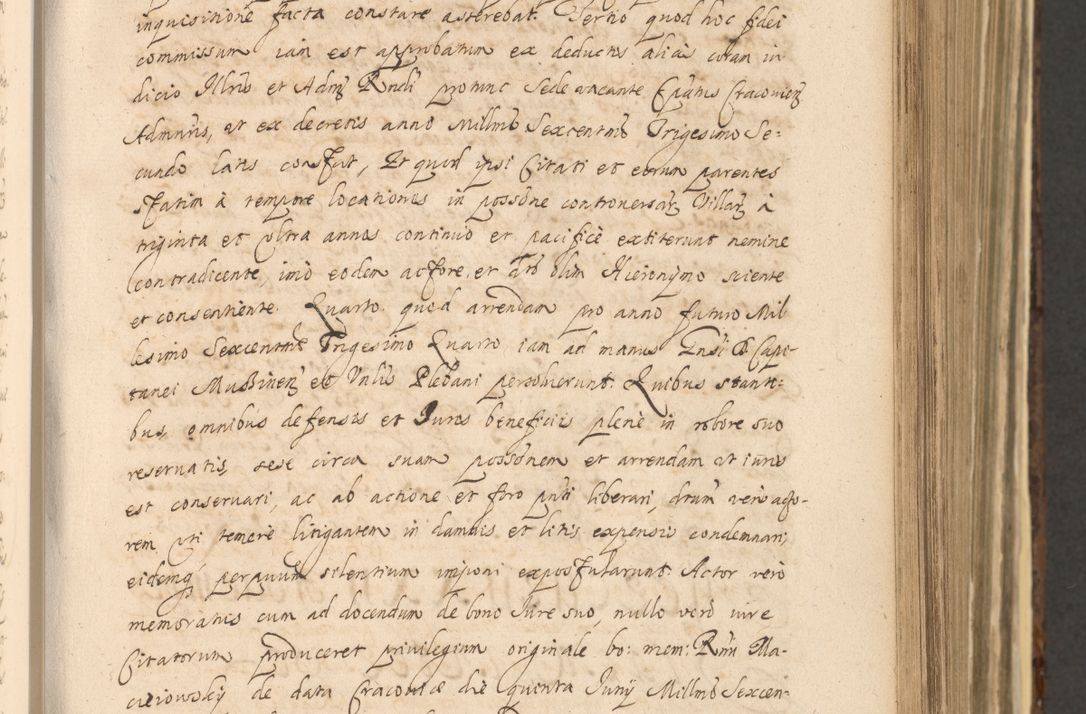 inquisitione facta constare asserebat. Tertio quod hoc fidei
commissum iam est approbatum ex deductis alias coram iu
dicio Illris et Admg Rndi pro tunc Sede vacante Epatus Cracovieng
Admnris, ut ex decretis anno Millmo Sexcentmo Trigesimo Se-
cundo latis constat, Et quod ipsi Citati et eorum parentes
statim à tempore locationis in possone controversarg Villarg à
triginta et ultra annos continuo et pacificè extiterunt nemine
contradicente, imò eodem actore, et olim Hieronymo sciente
et consentiente. Quarto quod arrendam pro anno futuro Mil
lesimo Sexcentmo Trigesimo Quarto iam ad manus Gnsi D Capi-
tanei Mussineng et Vnlis Plebani persolverunt. Quibus stanti:
bus, omnibus defensis et Iuris beneficiis plenè in robore suo
reservatis, sese circa suam possonem et arrendam ut iuris
est conservari, ac ab actione et foro pnti liberari, dictum verò acto-
rem uti temerè litigantem in damnis et litis expensis condemnari,
eidemq perpetuum silentium imponi expostularunt. Actor verò
memoratus cum ad docendum de bono Iure suo, nullo verò iure
Citatorum produceret privilegium originale bo: mem: Rmi Ma-
cieiowsky de data Cracoviæ die quinta Iunij Millmo Sexcen-